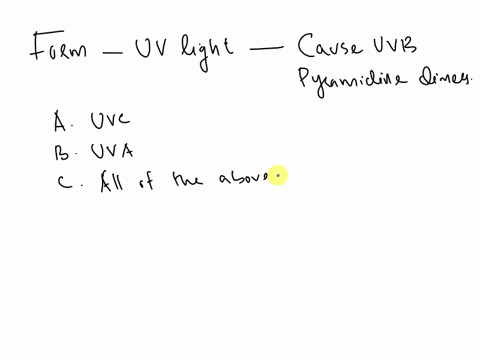 Form — UV light — Cause UVB
Pyramidine dimes.
A. UVC
B. UVA
C. All of the above.